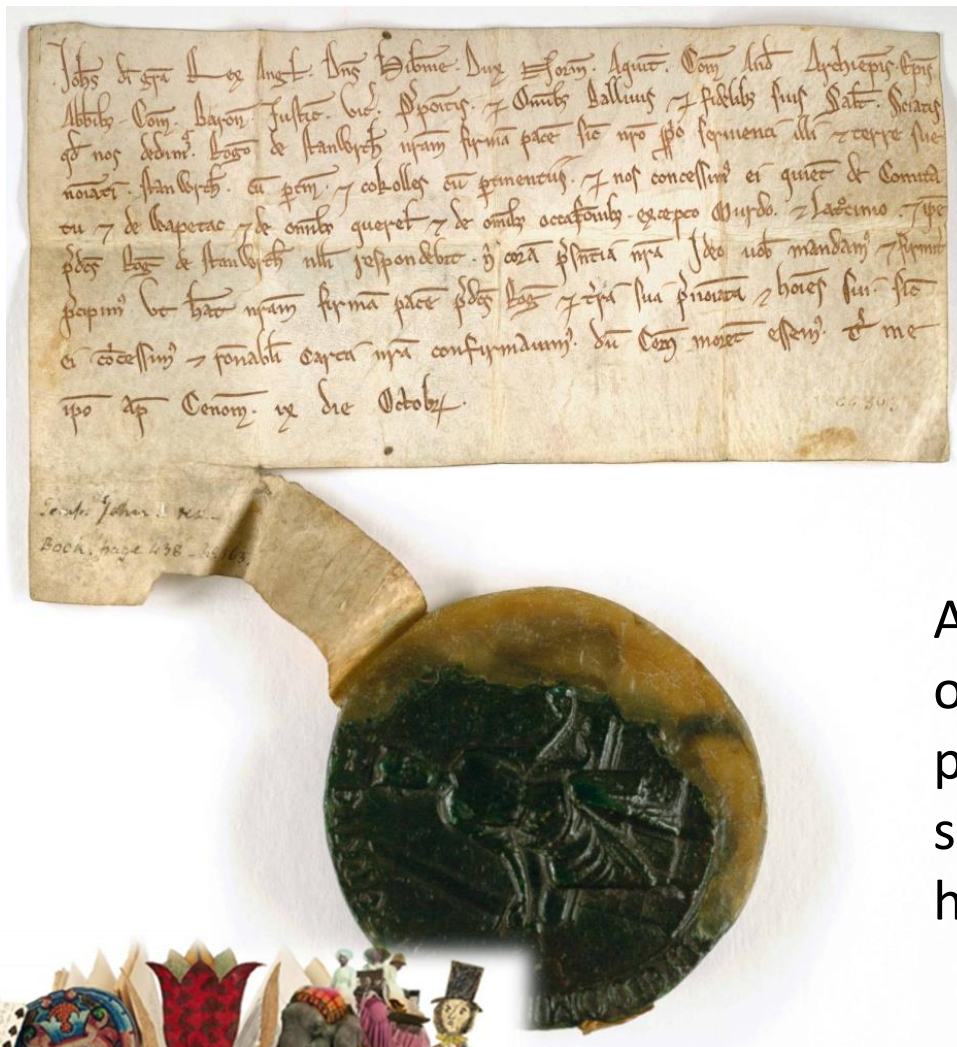 Johs di gra Rex Angl. Dns Hibnie. Dux Norm. Aquit. Com And Archiepis. Epis
Abbibz. Com. Baron. Justic. Vic. Ppositis. ⁊ Omibz Ballivis ⁊ fidelibz suis Salt. Sciatis
qd nos dedim Rogo de Stanwrth nram firma pace sic nro servienti illi ⁊ terre sue
noiati. Stanwrth. cu ptin. ⁊ cokolles cu ptinentiis. ⁊ nos concessim ei quiet de Comita
tu ⁊ de Wapetac ⁊ de omibz querel ⁊ de omibz occasionibz. excepto Murdro. ⁊ latcinio. ⁊ ipe
pdcs Rog de Stanwrth nlli respondebit. n cora psentia nra Ideo vob mandam ⁊ firmit
pcipim Ut hat nram firma pace pdcs Rog ⁊ tra sua pnoiata ⁊ hoies sui sic
ei cocessim ⁊ ronabli carta nra confirmavim. du Com moret essem. T me
ipo ap Cenom. ix die Octobr.
Temp. John
Book. page 438
A
o
p
s
h